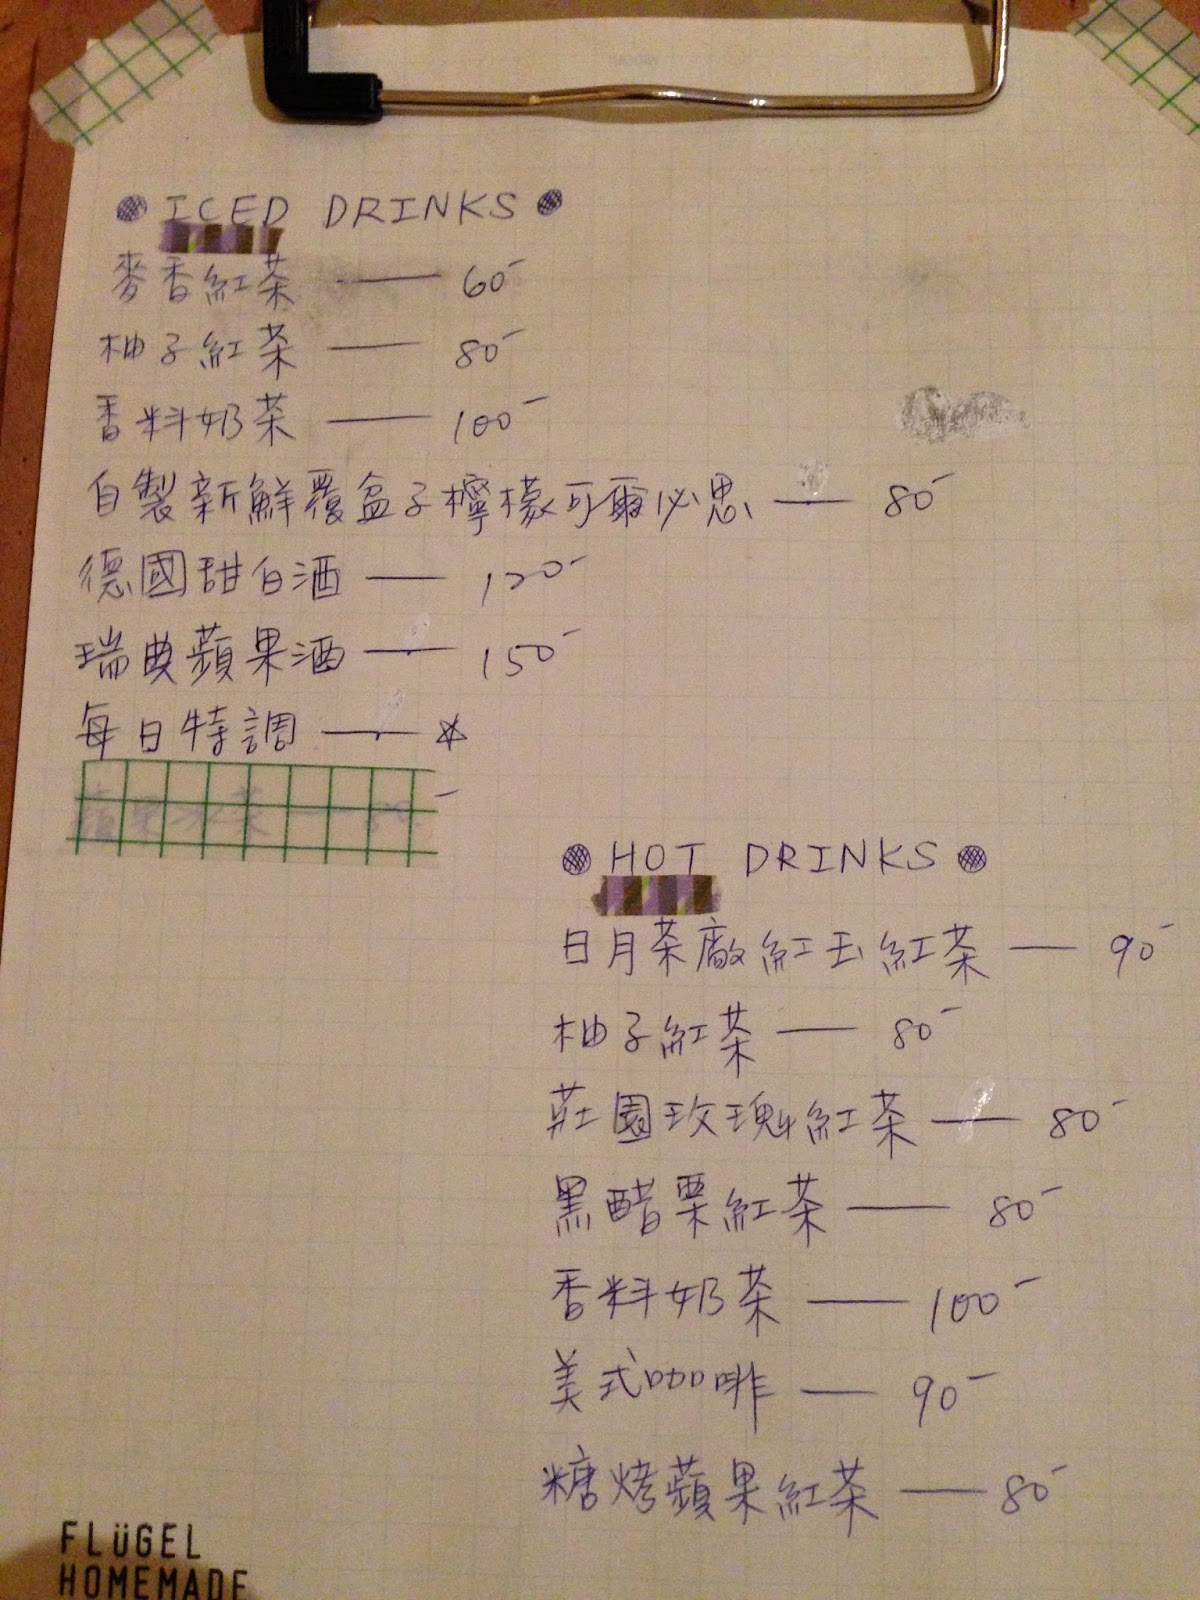 ICED DRINKS
麥香紅茶 — 60-
柚子紅茶 — 80-
香料奶茶 — 100-
自製新鮮覆盆子檸檬可爾必思 — 80-
德國甜白酒 — 120-
瑞典蘋果酒 — 150-
每日特調 — ☆
HOT DRINKS
日月茶廠紅玉紅茶 — 90-
柚子紅茶 — 80-
莊園玫瑰紅茶 — 80-
黑醋栗紅茶 — 80-
香料奶茶 — 100-
美式咖啡 — 90-
糖烤蘋果紅茶 — 80-
FLüGEL
HOMEMADE